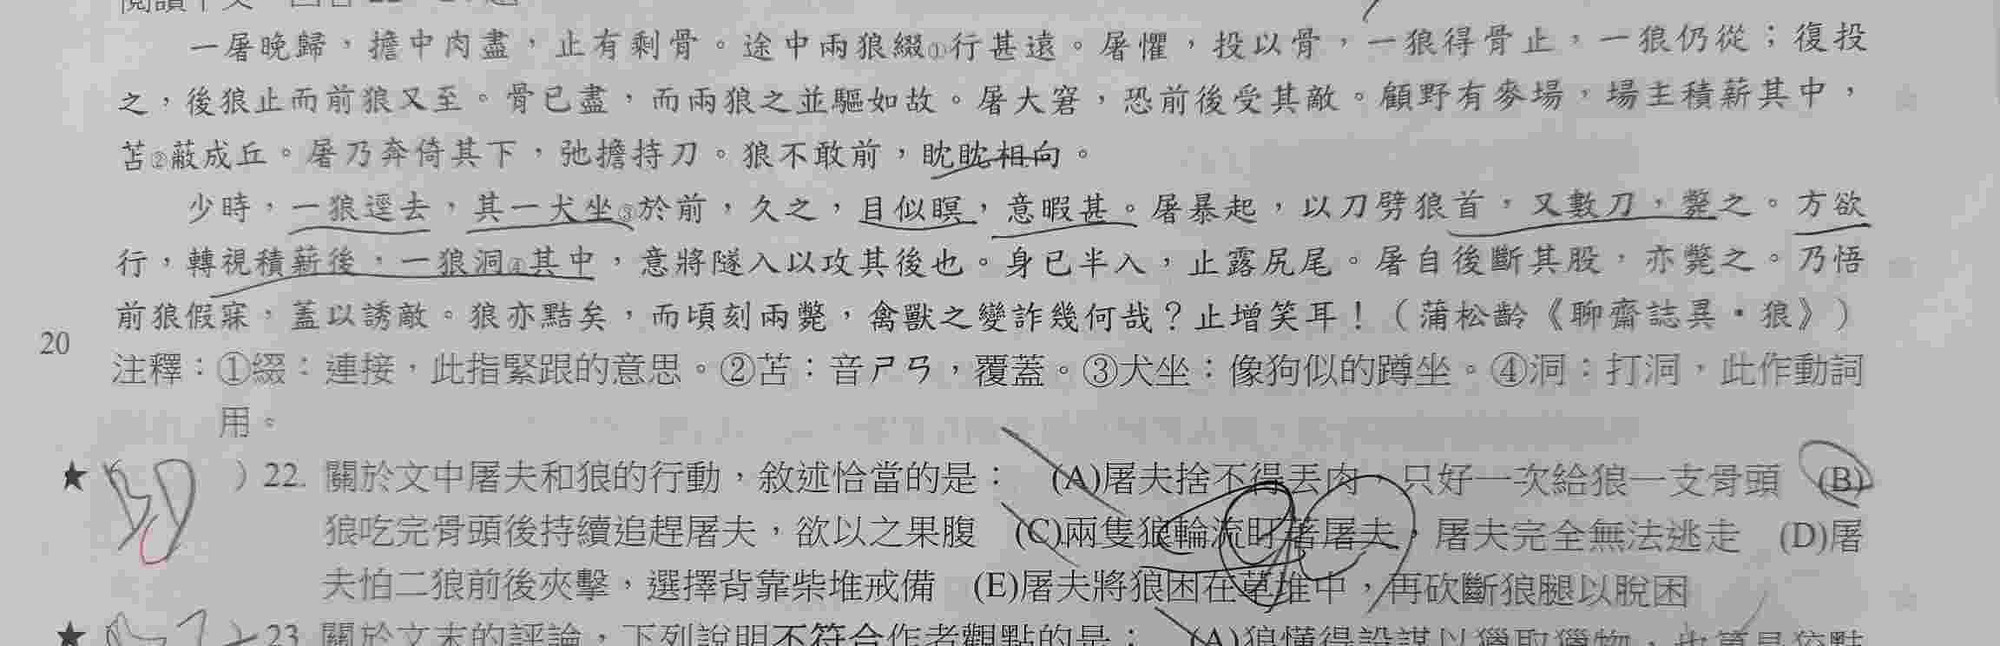 一屠晚歸，擔中肉盡，止有剩骨。途中兩狼綴①行甚遠。屠懼，投以骨，一狼得骨止，一狼仍從；復投
之，後狼止而前狼又至。骨已盡，而兩狼之並驅如故。屠大窘，恐前後受其敵。顧野有麥場，場主積薪其中，
苫②蔽成丘。屠乃奔倚其下，弛擔持刀。狼不敢前，眈眈相向。
少時，一狼逕去，其一犬坐③於前，久之，目似瞑，意暇甚。屠暴起，以刀劈狼首，又數刀，斃之。方欲
行，轉視積薪後，一狼洞④其中，意將隧入以攻其後也。身已半入，止露尻尾。屠自後斷其股，亦斃之。乃悟
前狼假寐，蓋以誘敵。狼亦黠矣，而頃刻兩斃，禽獸之變詐幾何哉？止增笑耳！（蒲松齡《聊齋誌異·狼》）
20
注釋：①綴：連接，此指緊跟的意思。②苫：音ㄕㄢ，覆蓋。③犬坐：像狗似的蹲坐。④洞：打洞，此作動詞
用。
★ ）22. 關於文中屠夫和狼的行動，敘述恰當的是： (A)屠夫捨不得丟肉，只好一次給狼一支骨頭 (B)
狼吃完骨頭後持續追趕屠夫，欲以之果腹 (C)兩隻狼輪流盯著屠夫，屠夫完全無法逃走 (D)屠
夫怕二狼前後夾擊，選擇背靠柴堆戒備 (E)屠夫將狼困在草堆中，再砍斷狼腿以脫困
★ 23. 關於文末的評論，下列說明不符合作者觀點的是： (A)狼懂得設謀以獵取獵物，也算是狡黠